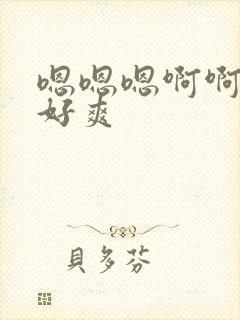 嗯嗯嗯啊啊
好爽
貝多芬